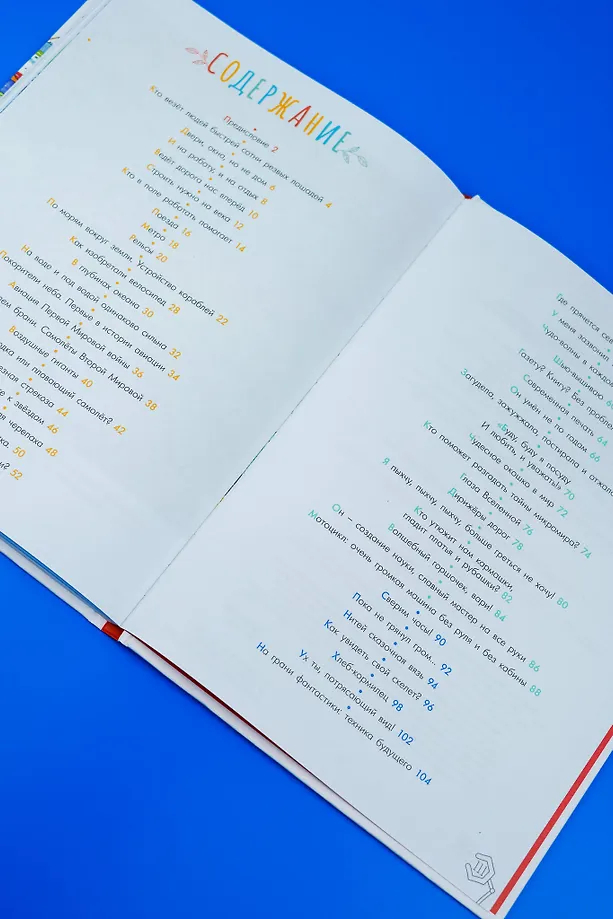 СОДЕРЖАНИЕ
Предисловие 2
Кто везёт людей быстрей сотни резвых лошадей 4
Двери, окна, но не дом 6
И на работу, и на отдых 8
Ведёт дорога нас вперёд 10
Строить нужно на века 12
Кто в поле работать помогает 14
Поезда 16
Метро 18
Рельсы 20
По морям вокруг земли. Устройство кораблей 22
Как изобретали велосипед 28
В глубинах океана 30
На воде и под водой одинаково сильна 32
Покорители неба. Первые в истории авиации 34
Авиация Первой Мировой войны 36
брани. Самолёты Второй Мировой 38
Воздушные гиганты 40
или плавающий самолёт? 42
стрекоза 44
к звёздам 46
черепаха 48
50
52
Где прячется
У меня зазвонил
Чудо-волны в
Шью-вышиваю
Газету? Книгу? Без
Современная печать 64
Он умён не по годам 66
Загудела, зажужжала, постирала и
«Буду, буду я посуду
И любить, и уважать!» 70
Чудесное окошко в мир 72
Кто поможет разгадать тайны микромира? 74
Глаза Вселенной 76
Дирижёры дорог 78
Я пыхчу, пыхчу, пыхчу, больше греться не хочу! 80
Кто утюжит нам кармашки,
гладит платья и рубашки? 82
Волшебный горшочек, вари! 84
Он – создание науки, славный мастер на все руки 86
Мотоцикл: очень громкая машина без руля и без кабины 88
Сверим часы! 90
Пока не грянул гром... 92
Нитей сказочная вязь 94
Как увидеть свой скелет? 96
Хлеб-кормилец 98
Ух ты, потрясающий вид! 102
На грани фантастики: техника будущего 104